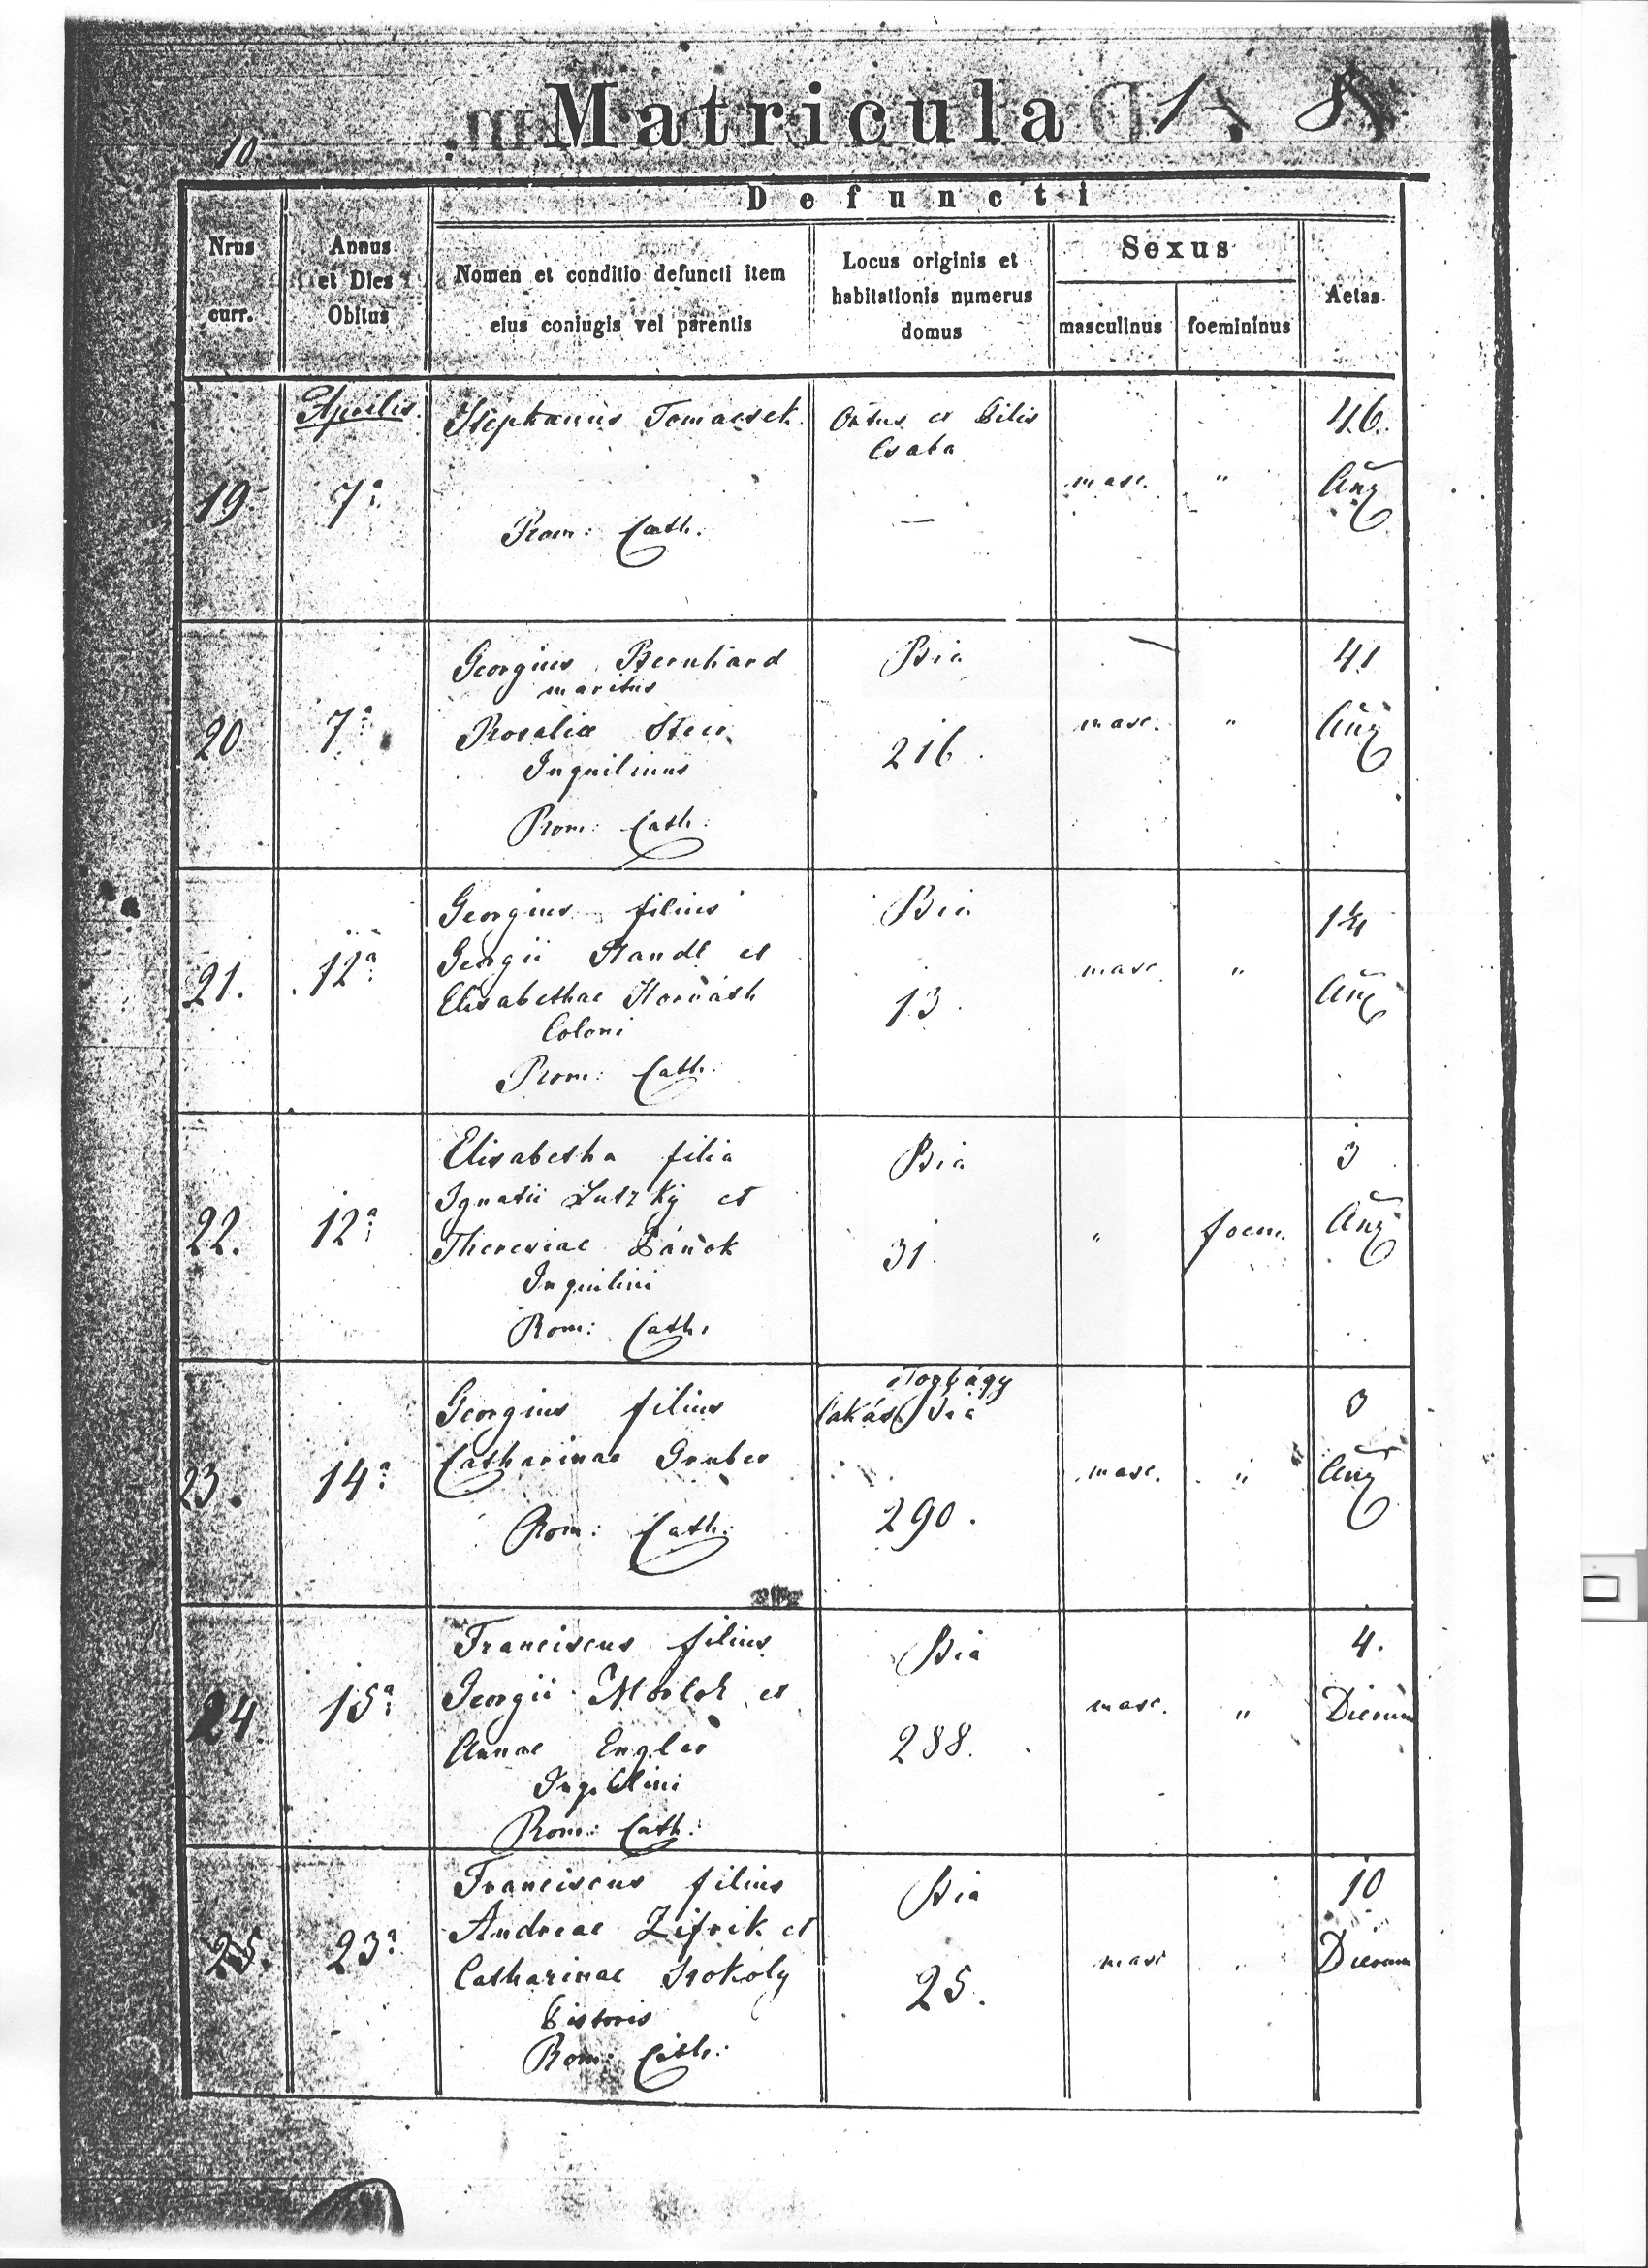 10.
Matricula
Defuncti
Nrus curr.
Annus et Dies Obitus
Nomen et conditio defuncti item
eius coniugis vel parentis
Locus originis et
habitationis numerus
domus
Sexus
masculinus
foemininus
Aetas
Aprilis.
19.
7a
Stephanus Tomacsek
Rom: Cath.
Ortus ex Pilis
Csaba
—
masc.
"
46.
Añ
20
7a
Georgius Bernhard
maritus
Rosaliae
Inquilinus
Rom: Cath:
Bia
216.
masc.
"
41
Añ
21.
12a
Georgius filius
Georgii Standl et
Elisabethae Horváth
Coloni
Rom: Cath:
Bia
13.
masc
"
Añ
22.
12a
Elisabetha filia
Ignatii Lutzky et
Theresiae
Inquilini
Rom: Cath:
Bia
31.
"
foem.
3
Añ
23.
14a
Georgius filius
Catharinae Gruber
Rom: Cath:
Torbágy
lakás Bia
290.
masc.
"
3
Añ
24
15a
Franciscus filius
Georgii et
Annae Engler
Rom: Cath:
Bia
288.
masc.
"
4.
Dierum
25.
23a
Franciscus filius
Andreae Zifrik et
Catharinae Szokoly
Pistoris
Rom: Cath:
Bia
25.
masc
"
10
Dierum